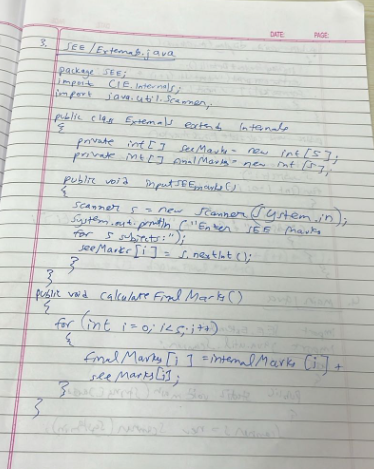 DATE: PAGE:
3. SEE/Externals.java
package SEE;
import CIE.internals;
import java.util.Scanner;
public class Externals extends internals
{
private int[] seeMarks = new int[5];
private int[] finalMarks = new int[5];
public void inputSEEmarks()
{
scanner s = new scanner(System.in);
system.out.println("Enter SEE marks
for 5 subjects:");
seeMarks[i] = s.nextInt();
}
}
public void calculateFinalMarks()
{
for (int i=0; i<5; i++)
{
finalMarks[i] = internalMarks[i] +
seeMarks[i];
}
}